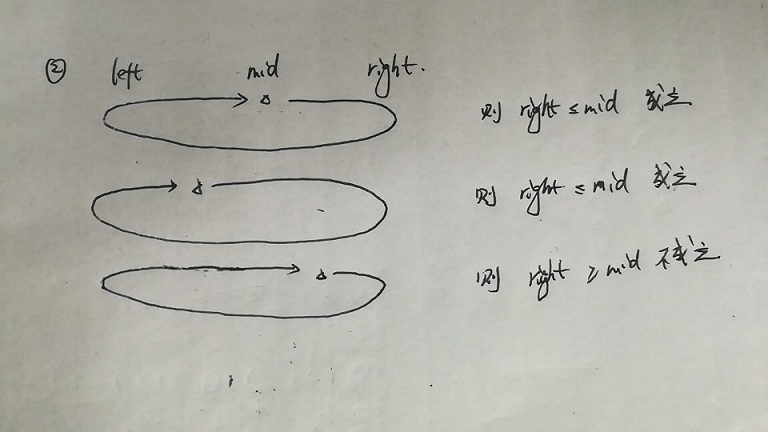 ② left mid right.
则 right ≤ mid 成立
则 right ≤ mid 成立
则 right ≥ mid 不成立